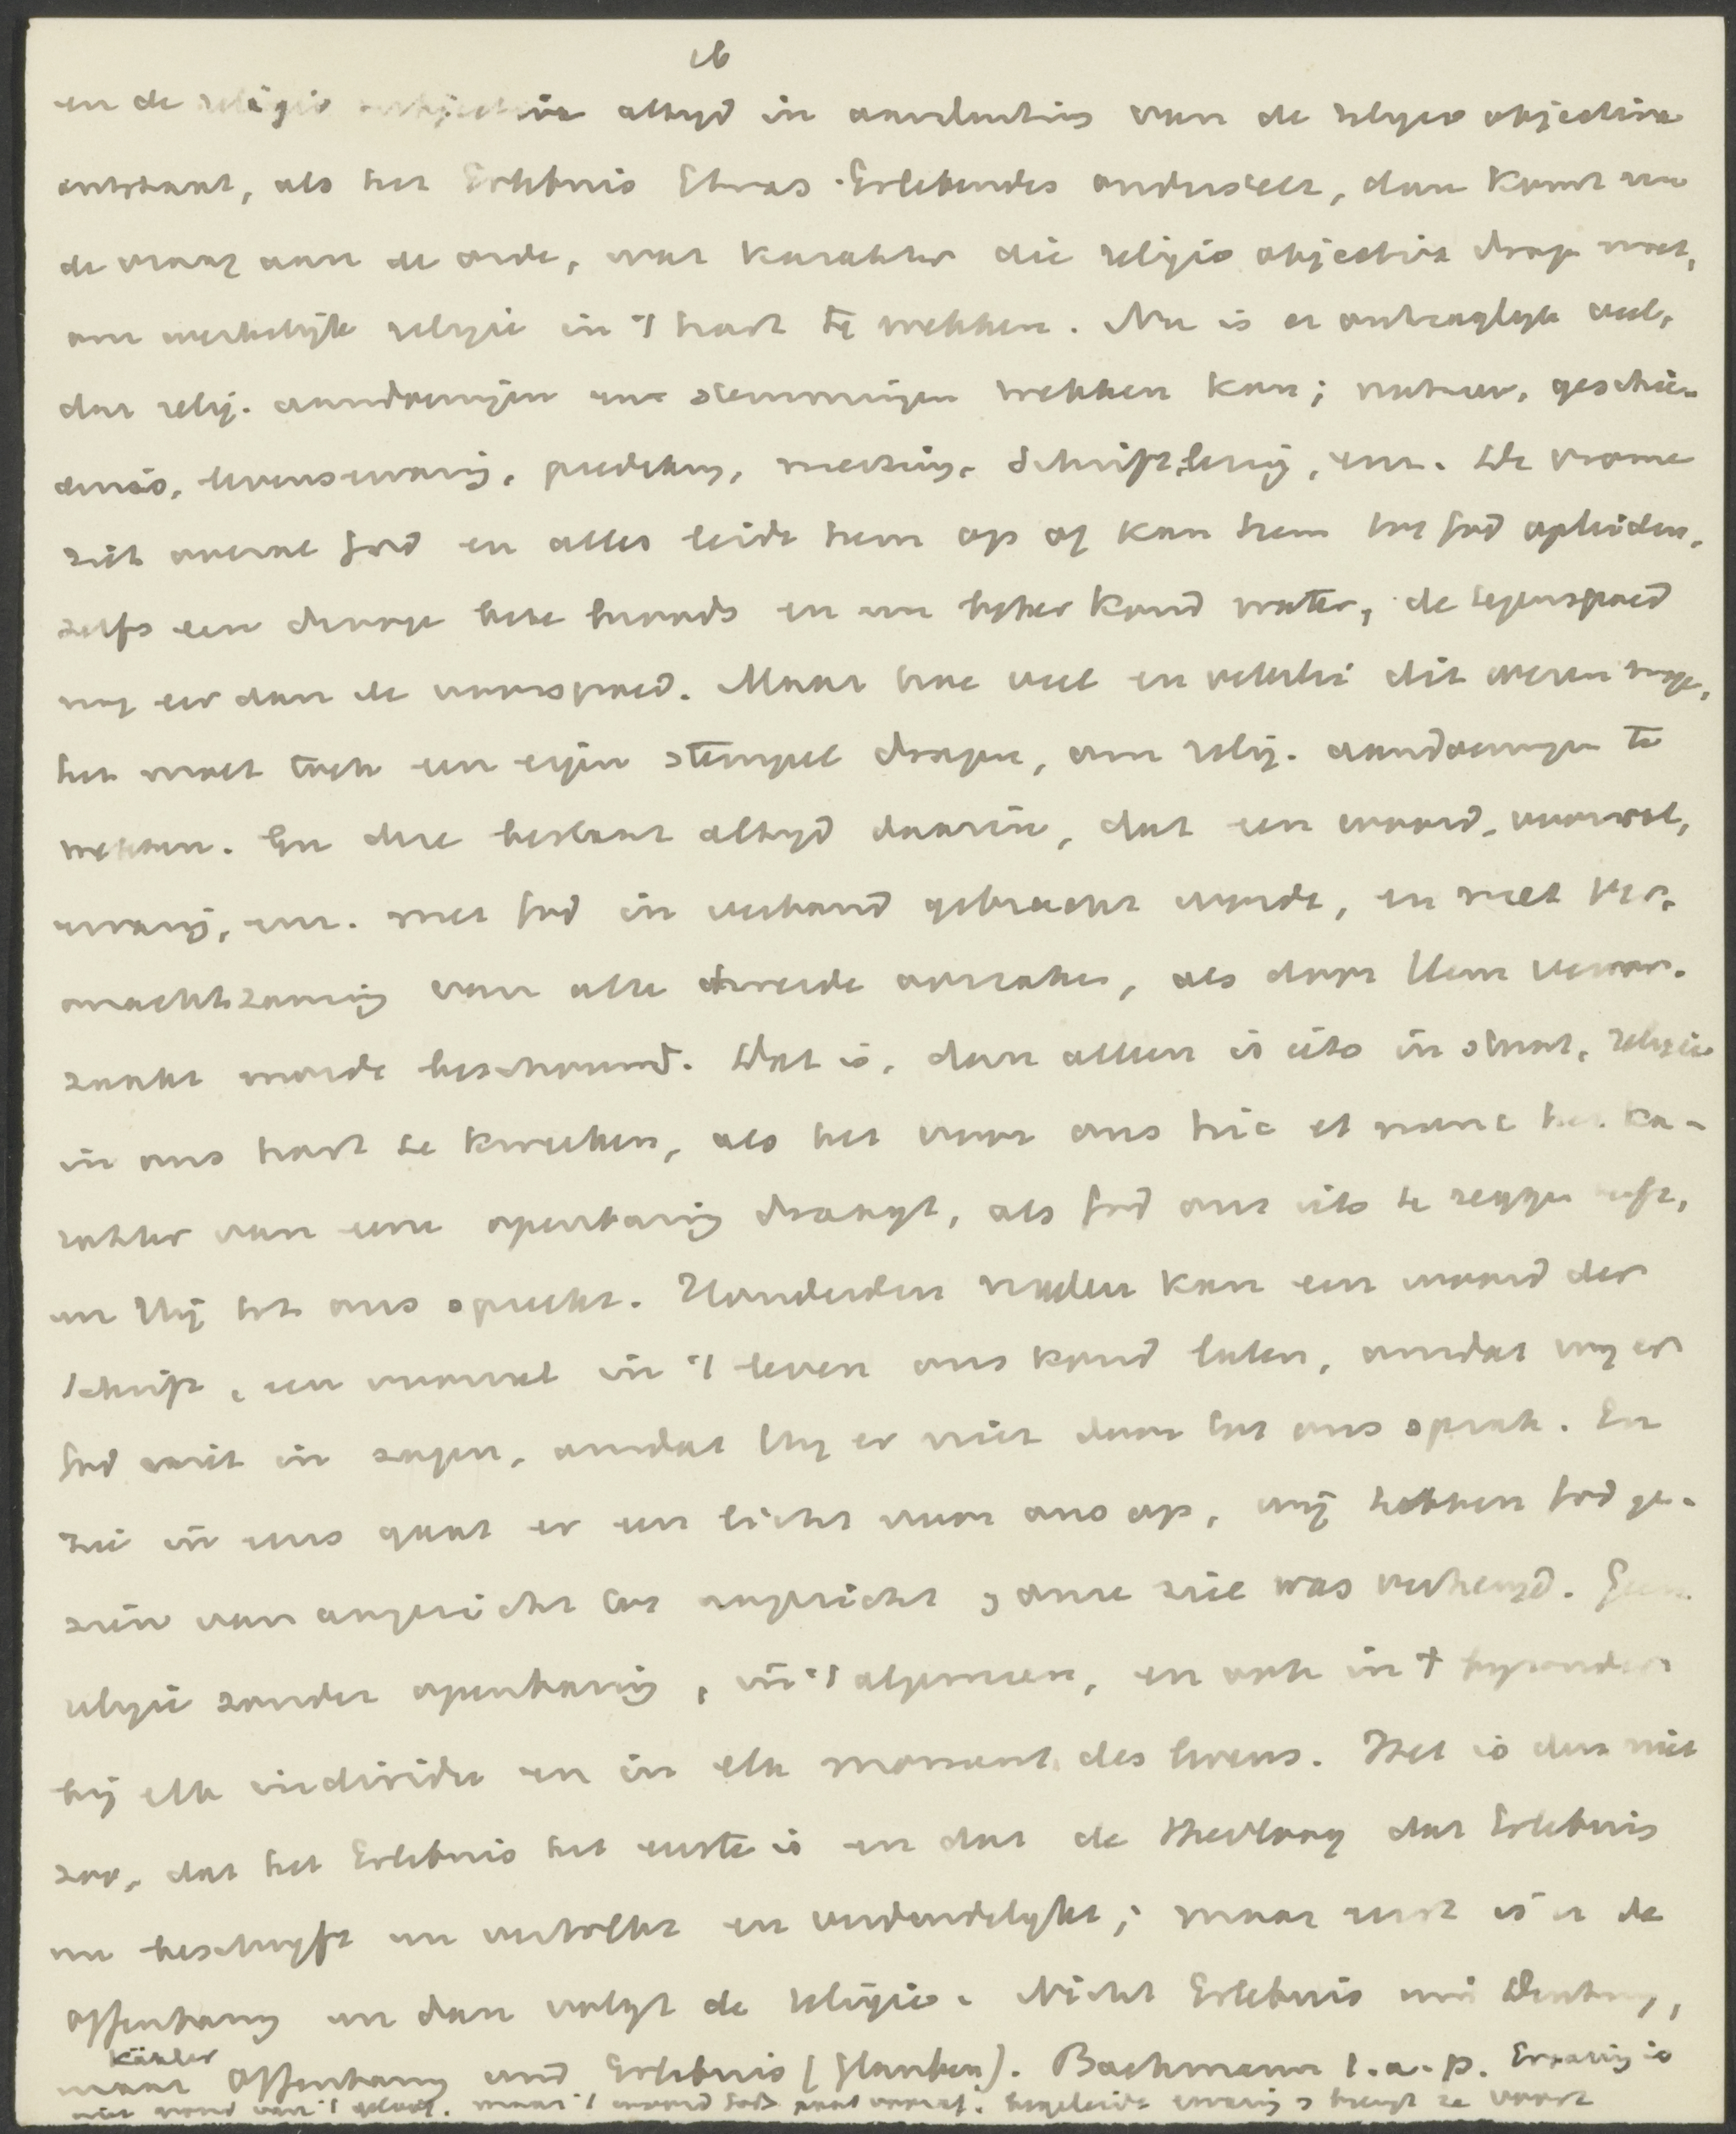 16
en de religio subjectiva altijd in aansluiting van de religio objectiva
ontstaat, als het Erlebnis Etwas Erlebendes onderstelt, dan komt nu
de vraag aan de orde, wat karakter die religio objectiva dragen moet,
om werkelijk religie in 't hart te wekken. Nu is er ontzaglyk veel,
dat relig. aandoeningen en stemmingen wekken kan; natuur, geschie-
denis, levenservaring, prediking, Schriftlezing, enz. De vrome
ziet overal God en alles leidt hem op of kan hem tot God opleiden,
zelfs een droge bete broods en een beker koud water, de tegenspoed
nog eer dan de voorspoed. Maar hoe veel en velerlei dit wezen moge,
het moet toch een eigen stempel dragen, om relig. aandoeningen te
wekken. En deze bestaat altyd daarin, dat een woord, voorval,
ervaring, enz. met God in verband gebracht wordt, en met ver-
onachtzaming van alle tweede oorzaken, als door Hem veroor-
zaakt wordt beschouwd. Dat is, dan alleen is iets in staat, religie
in ons hart te kweeken, als het voor ons hic et nunc het ka-
rakter van eene openbaring draagt, als God ons iets te zeggen heeft,
en Hij tot ons spreekt. Honderden malen kan een woord der
Schrift, een voorval in 't leven ons koud laten, omdat wy er
God niet in zagen, omdat Hy er niet door tot ons sprak. En
zie in eens gaat er een licht voor ons op, wij hebben God ge-
zien van aangezicht tot aangezicht en onze ziel was verheugd. Geen
religie zonder openbaring, in 't algemeen, en ook in 't byzonder
bij elk individu en in elk moment des levens. Het is dus niet
zoo, dat het Erlebnis het eerste is en dat de theoloog dat Erlebnis
nu beschryft en vertolkt en verduidelykt; maar eerst is er de
Offenbarung en dan volgt de religie. Nicht Erlebnis und Deutung,
Kähler
maar Offenbarung und Erlebnis (Glauben). Bachmann t.a.p. Ervaring is
niet grond van 't geloof, maar 't woord Gods gaat vooraf, begeleidt ervaring & brengt ze voort